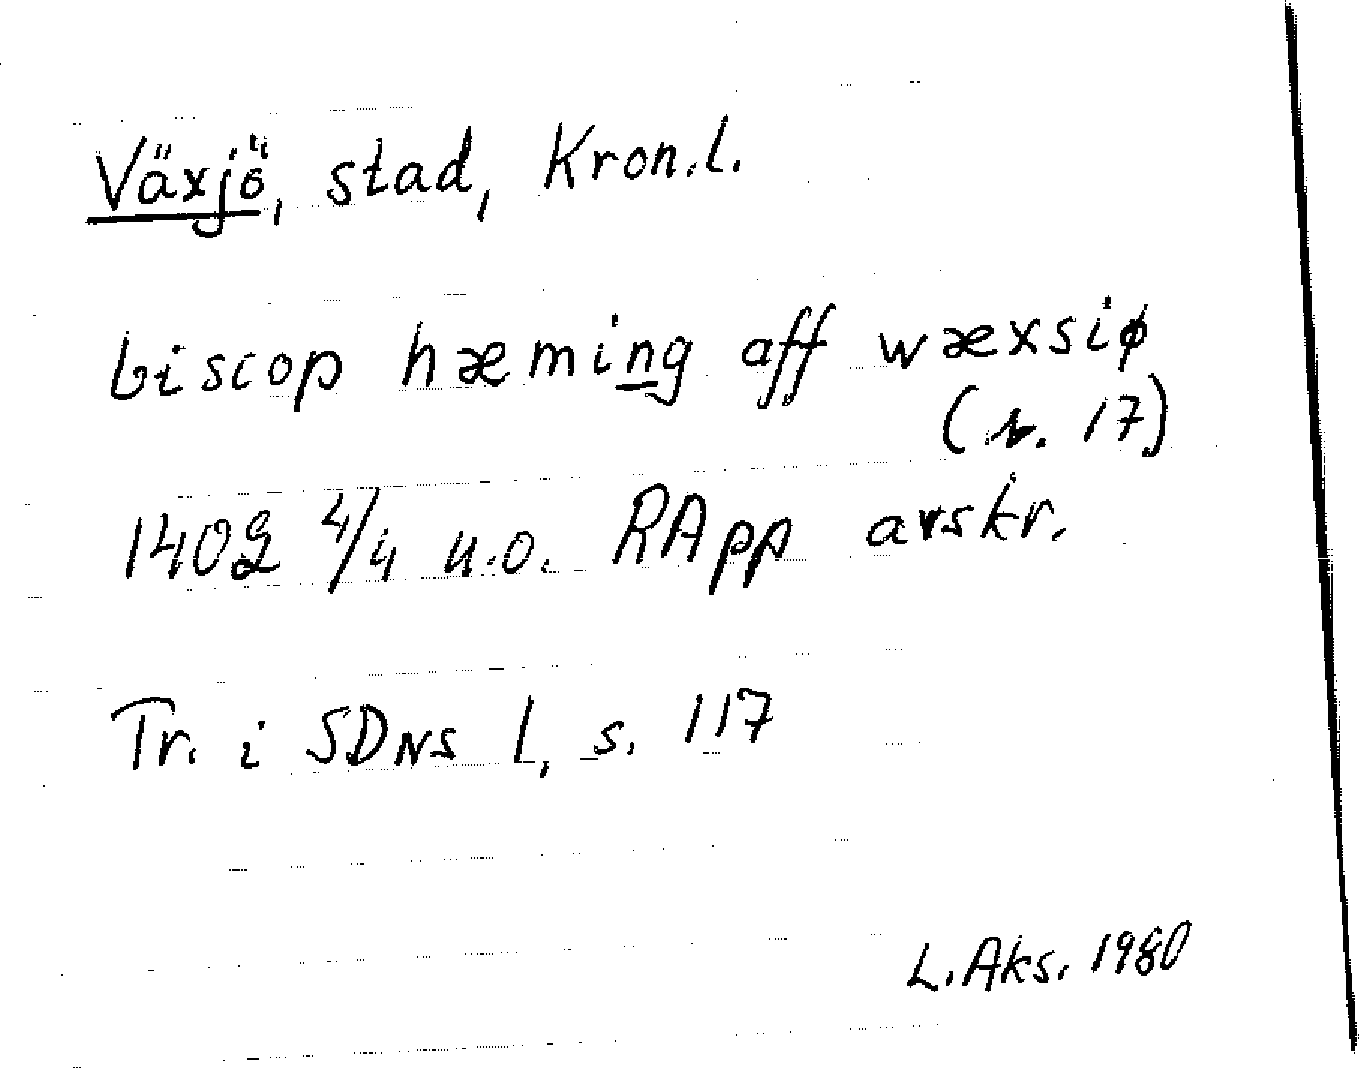 Växjö, stad, Kron.l.
biscop hæming aff wæxsiø
(r. 17)
1402 4/4 u.o. RApp avskr.
Tr. i SDNS 1, s. 117
L. Aks. 1980